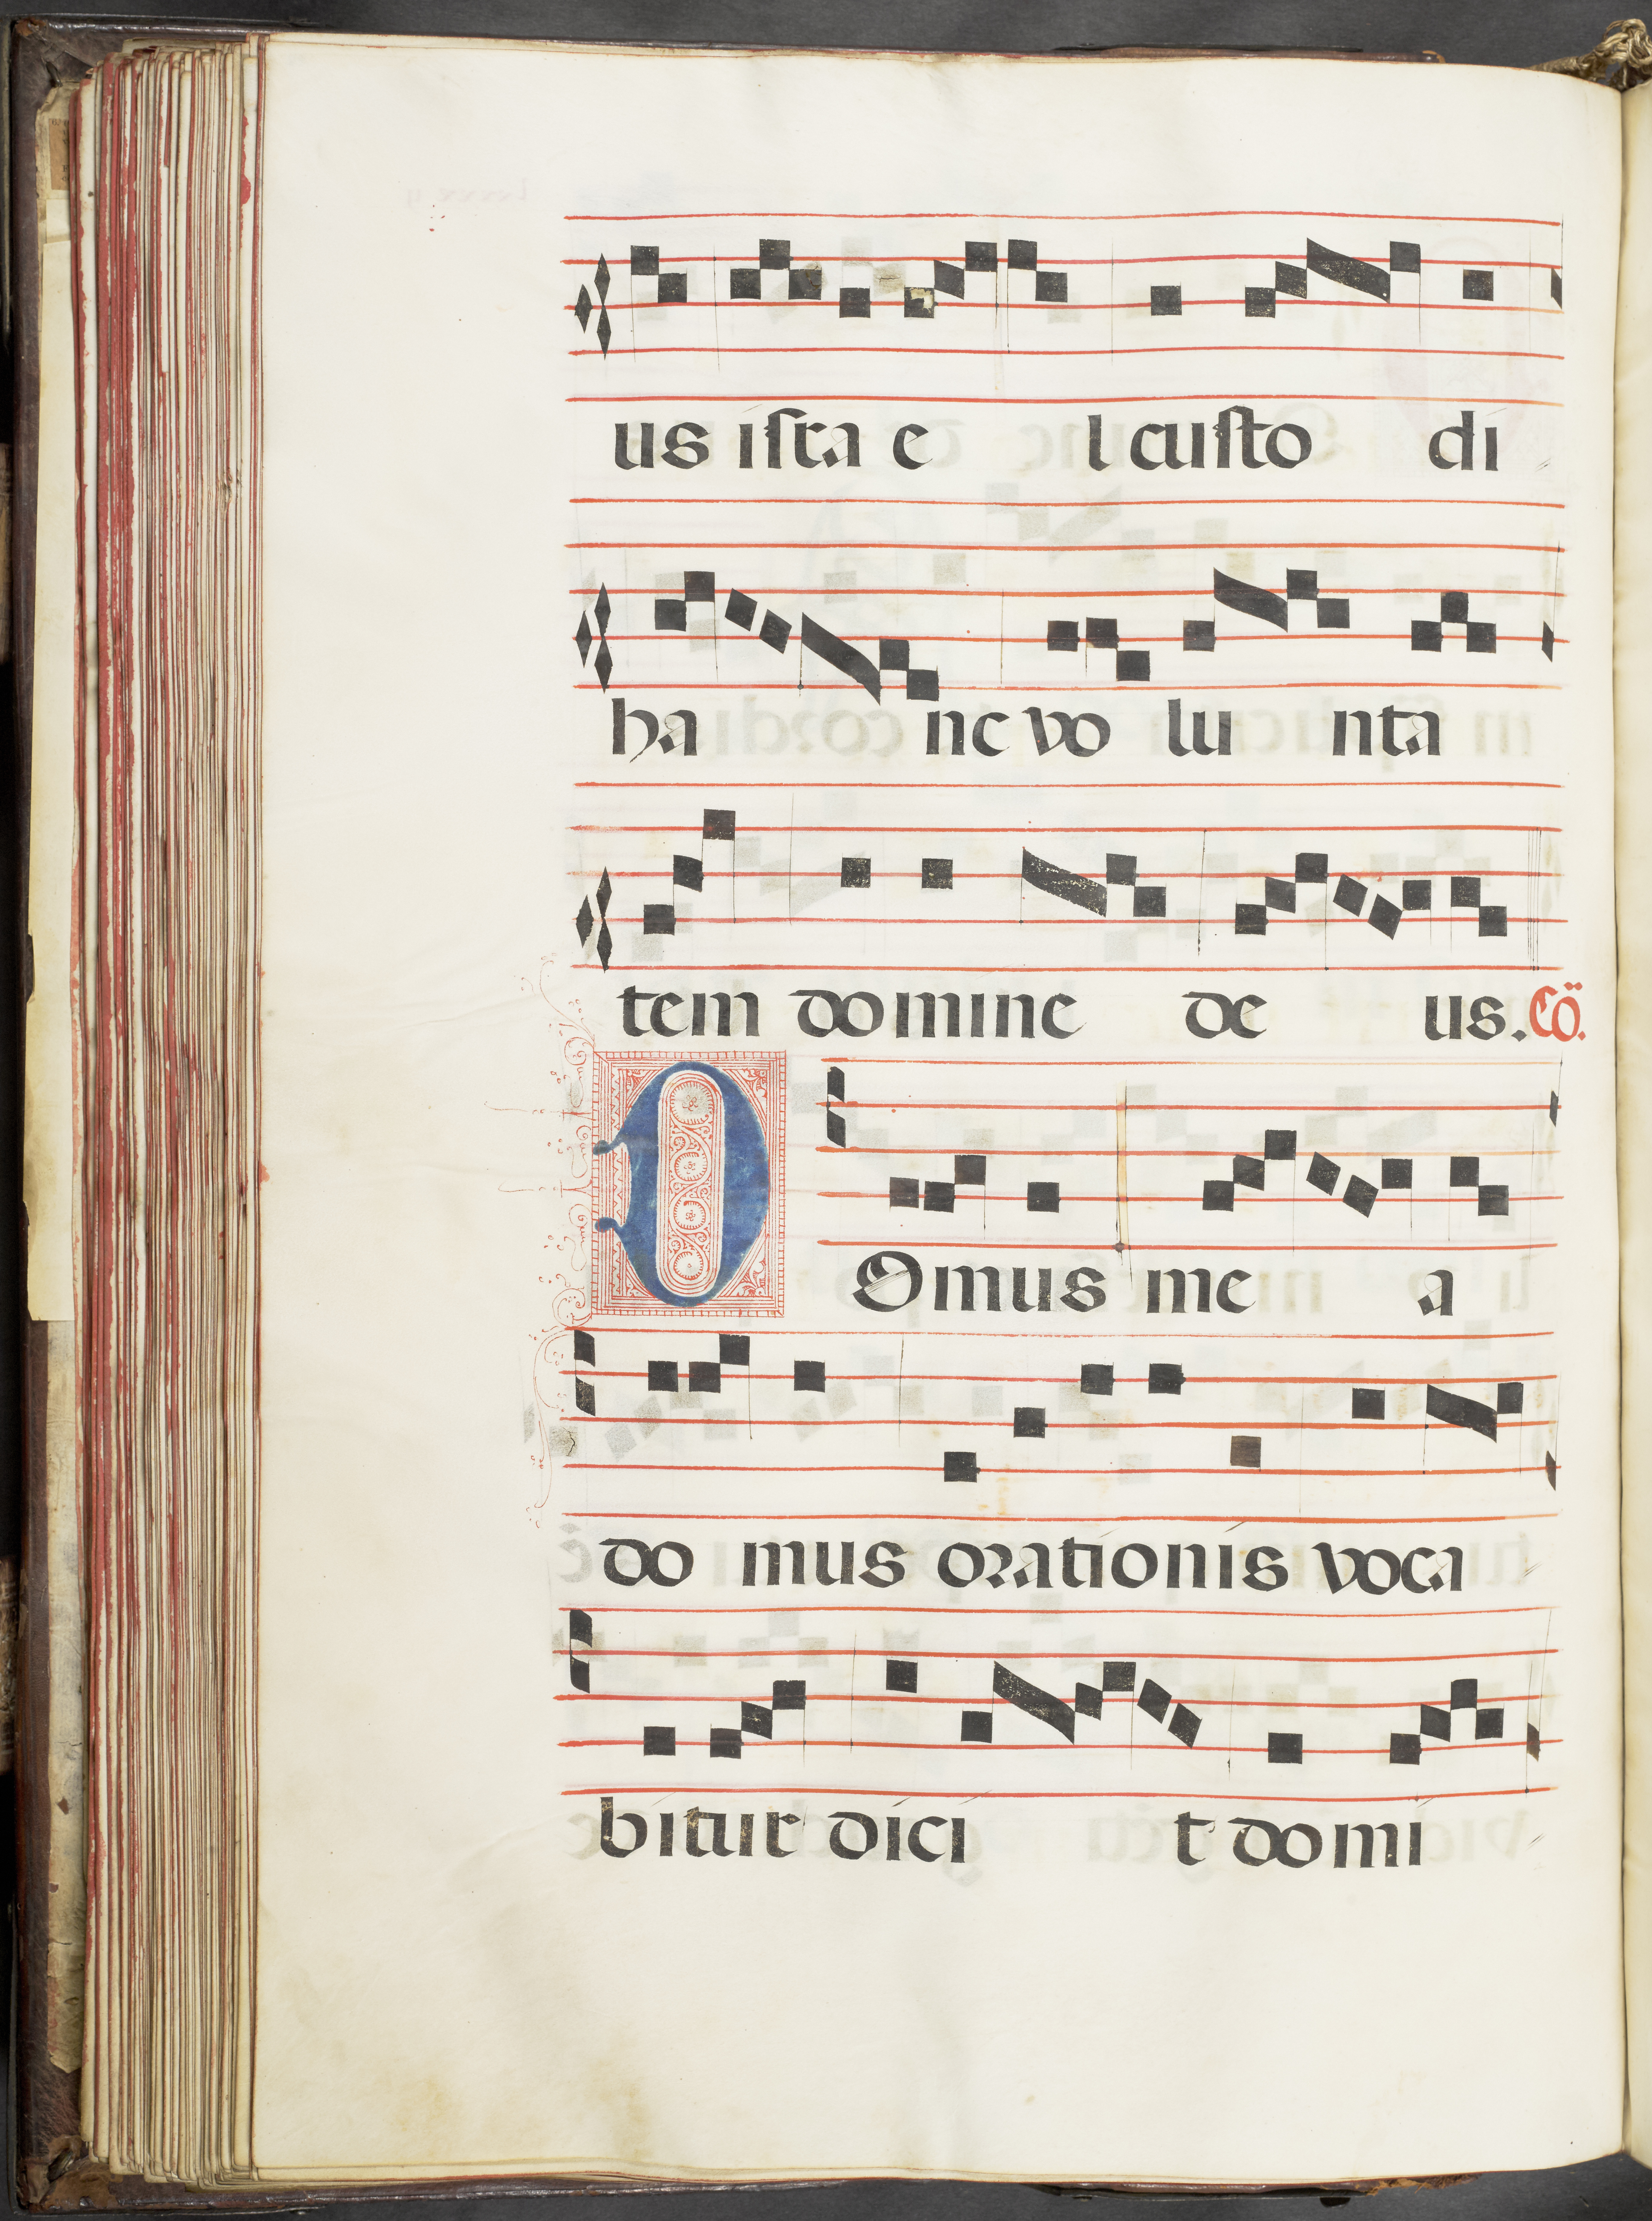 us iſra e l cuſto di
ha nc vo lu nta
tem domine de us. Cō.
DOmus me a
do mus orationis voca
bitur dici t domi